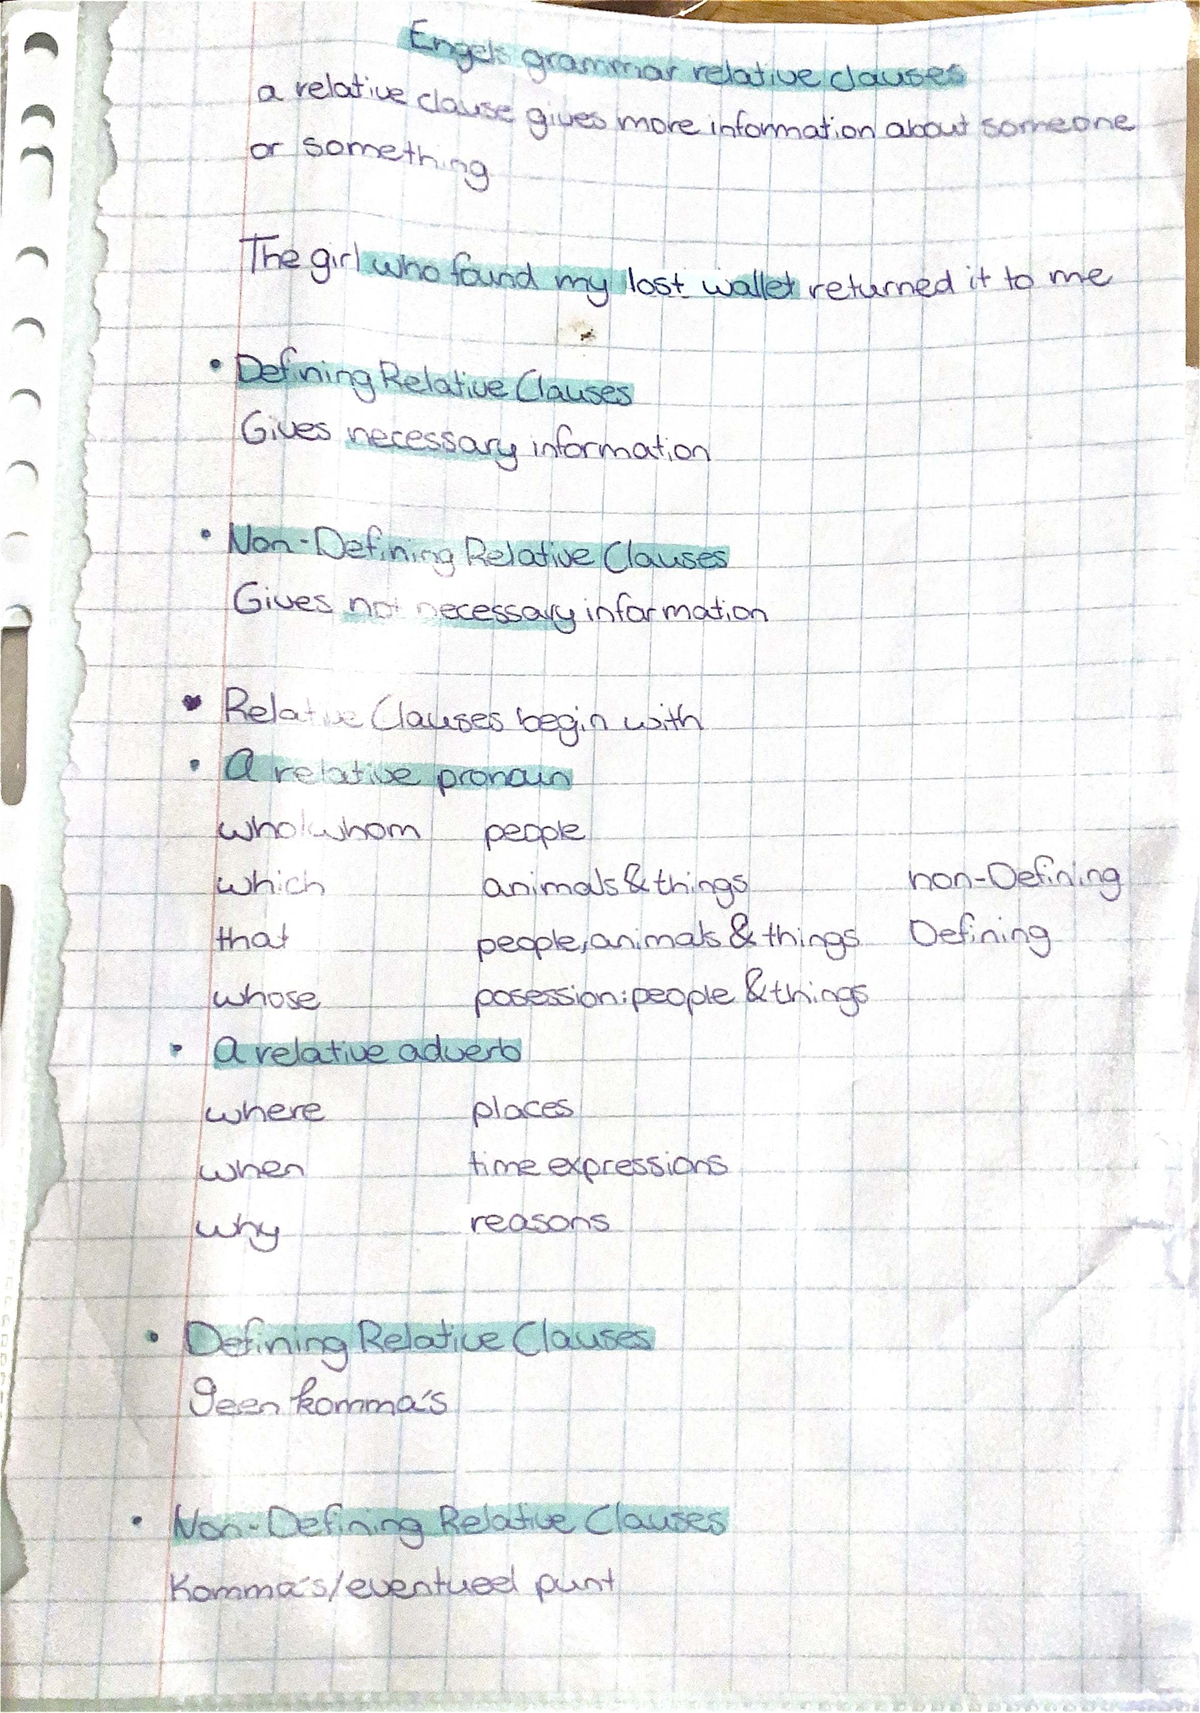 Engels grammar relative clauses
a relative clause gives more information about someone
or something
The girl who found my lost wallet returned it to me
• Defining Relative Clauses
Gives necessary information
• Non-Defining Relative Clauses
Gives not necessary information
♥ Relative Clauses begin with
• A relative pronoun
who/whom people
which animals & things non-Defining
that people, animals & things Defining
whose posession: people & things
• A relative adverb
where places
when time expressions
why reasons
• Defining Relative Clauses
geen komma's
• Non-Defining Relative Clauses
Komma's/eventueel punt